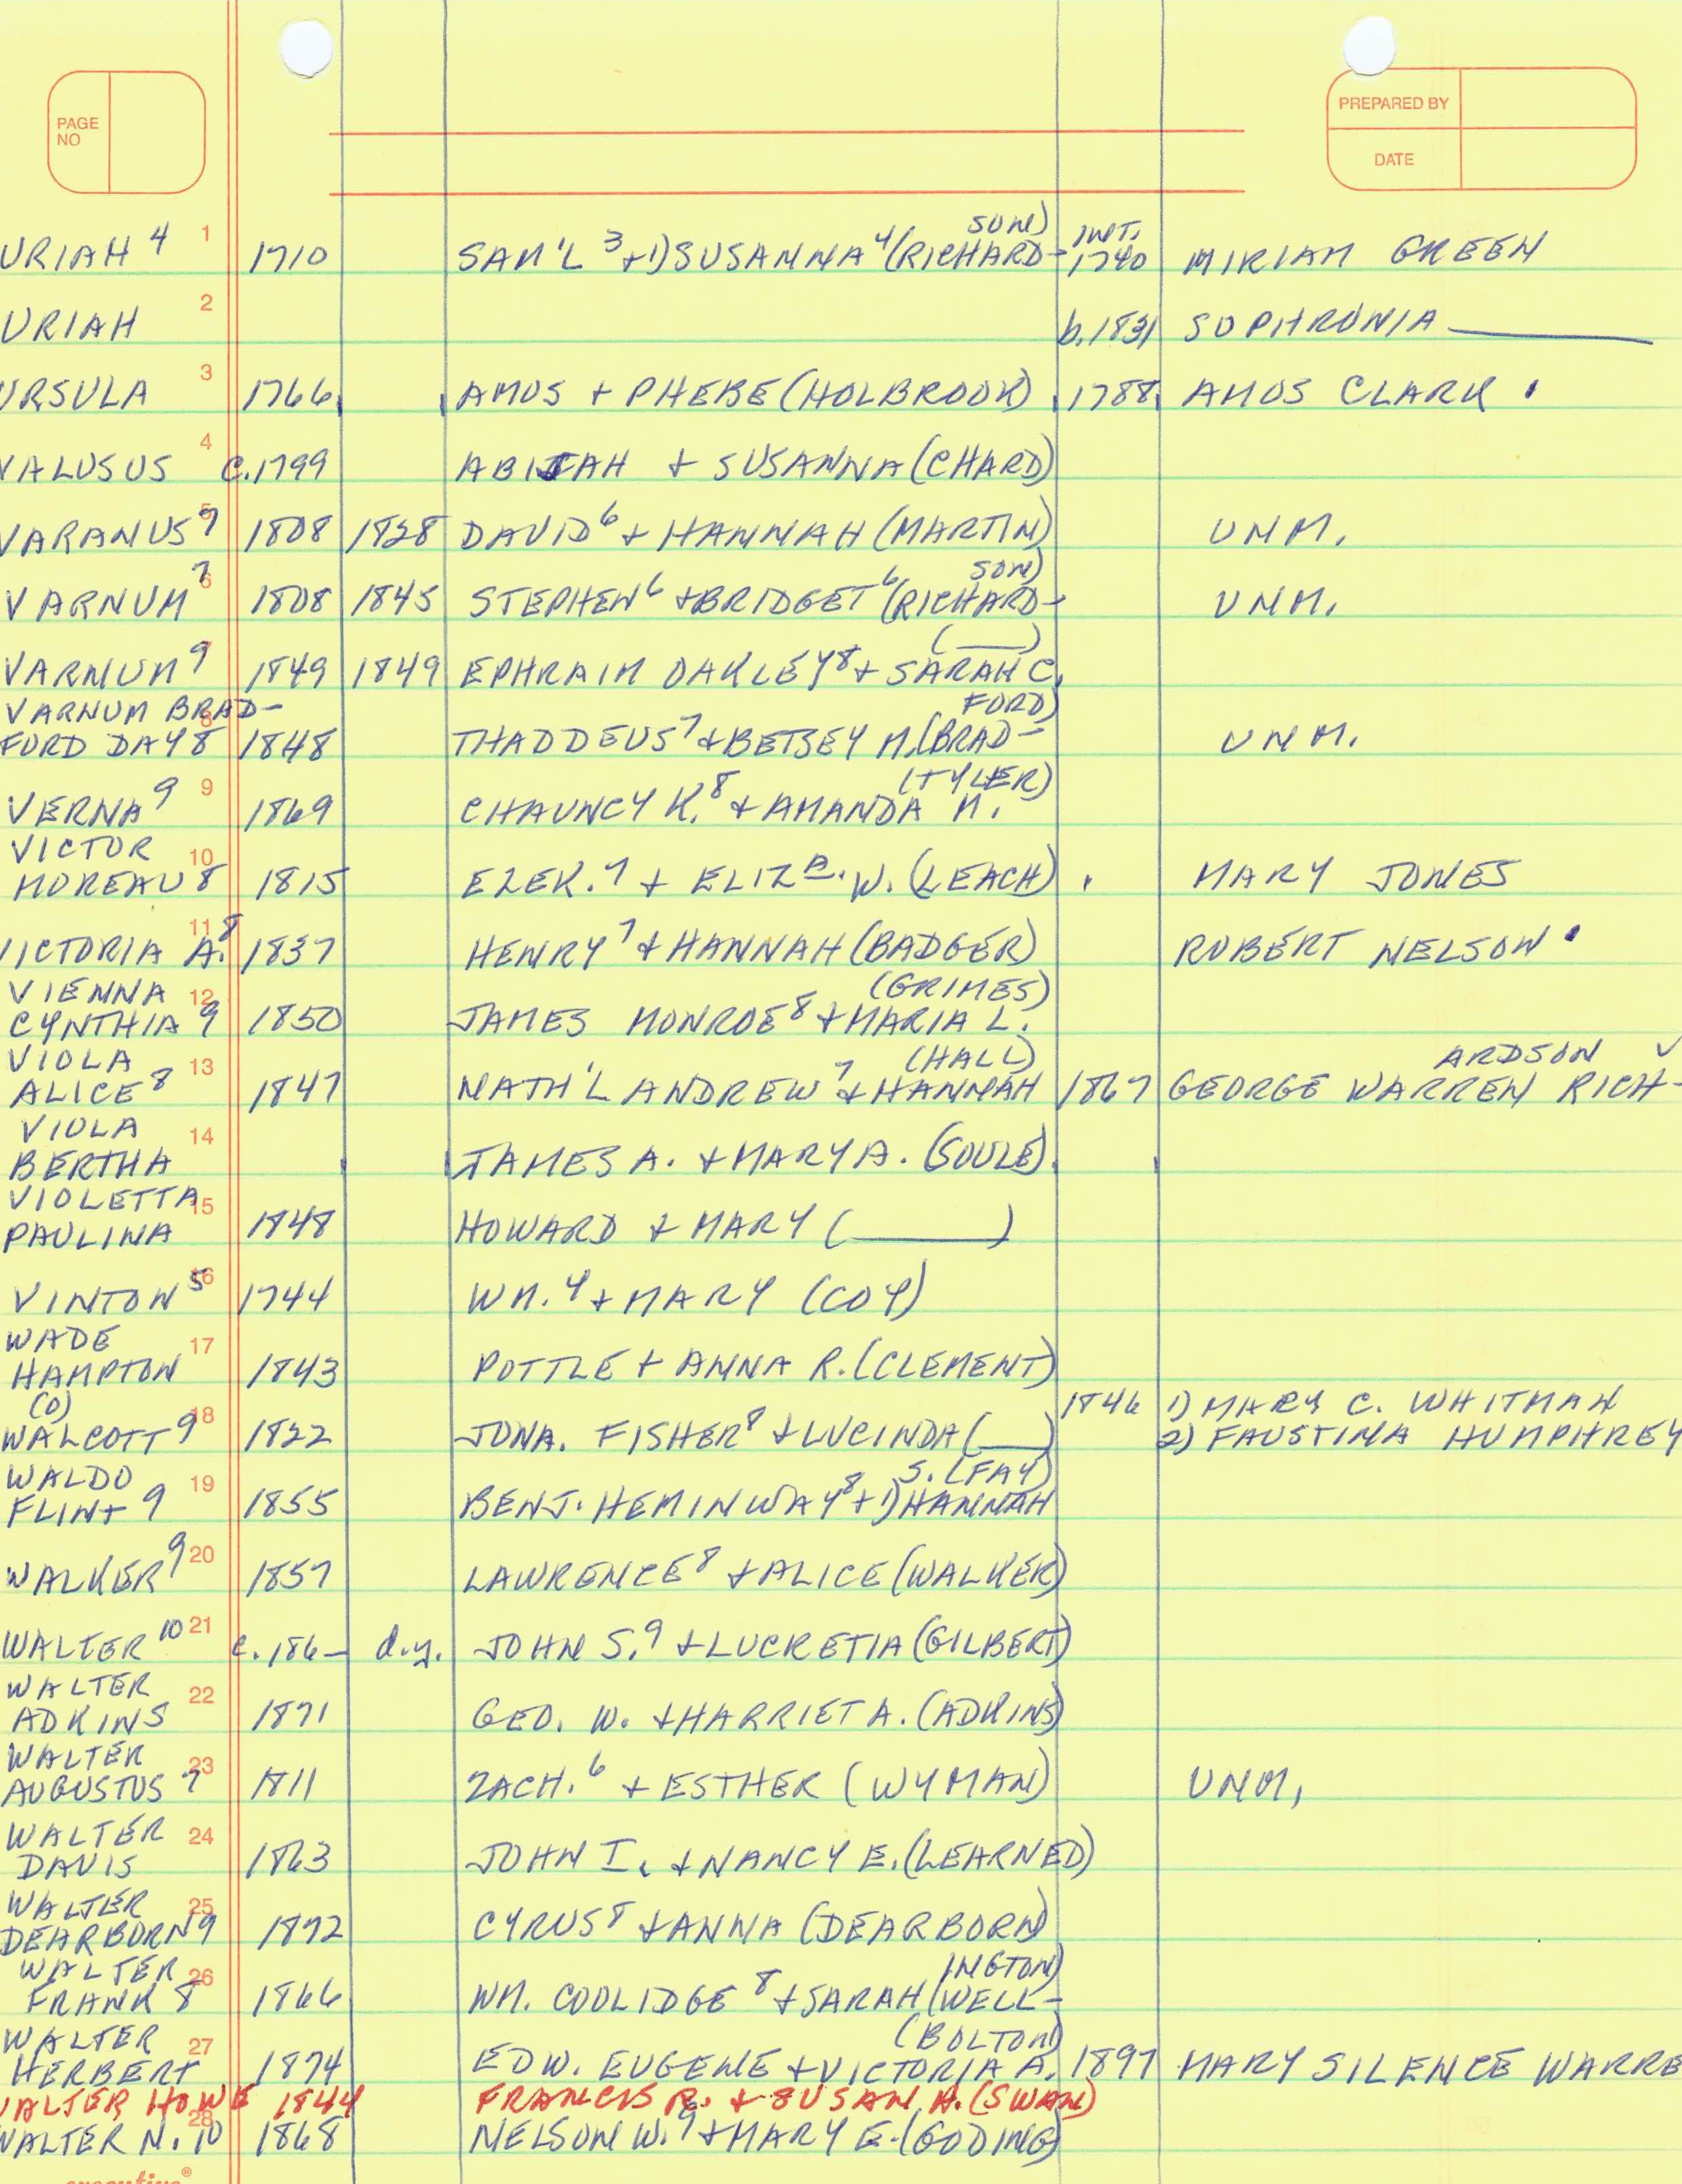 PAGE NO
PREPARED BY
DATE
SON) INT.
URIAH 4 1 1710 SAM'L 3 + 1) SUSANNA 4 (RICHARD- 1740 MIRIAM GREEN
2
URIAH b.1831 SOPHRONIA ______
URSULA 3 1766 AMOS + PHEBE (HOLBROOK) 1788 AMOS CLARK .
4
VALUSUS C.1799 ABIJAH + SUSANNA (CHARD)
VARANUS 7 5 1808 1828 DAVID 6 + HANNAH (MARTIN) UNM.
SON)
VARNUM 7 6 1808 1845 STEPHEN 6 + BRIDGET 6 (RICHARD- UNM.
(___)
VARNUM 9 7 1849 1849 EPHRAIM OAKLEY 8 + SARAH C.
VARNUM BRAD- FORD)
FORD DAY 8 8 1848 THADDEUS 7 + BETSEY M. (BRAD- UNM.
(TYLER)
VERNA 9 9 1869 CHAUNCY K. 8 + AMANDA M.
VICTOR
MOREAU 8 10 1815 EZEK. 7 + ELIZA. W. (LEACH) MARY JONES
VICTORIA A. 8 11 1837 HENRY 7 + HANNAH (BADGER) ROBERT NELSON .
VIENNA (GRIMES)
CYNTHIA 9 12 1850 JAMES MONROE 8 + MARIA L.
VIOLA (HALL) ARDSON ✓
ALICE 8 13 1847 NATH'L ANDREW 7 + HANNAH 1867 GEORGE WARREN RICH-
VIOLA
BERTHA 14 JAMES A. + MARY A. (SOULE)
VIOLETTA
PAULINA 15 1848 HOWARD + MARY (______)
VINTON 5 16 1744 WM. 4 + MARY (COY)
WADE
HAMPTON 17 1843 POTTLE + ANNA R. (CLEMENT)
(O) 1846 1) MARY C. WHITMAN
WALCOTT 9 18 1822 JONA. FISHER 8 + LUCINDA (___) 2) FAUSTINA HUMPHREY
WALDO S. (FAY)
FLINT 9 19 1855 BENJ. HEMINWAY 8 + 1) HANNAH
WALKER 9 20 1857 LAWRENCE 8 + ALICE (WALKER)
WALTER 10 21 c. 186- d.y. JOHN S. 9 + LUCRETIA (GILBERT)
WALTER
ADKINS 22 1871 GEO. W. + HARRIET A. (ADKINS)
WALTER
AUGUSTUS 7 23 1811 ZACH. 6 + ESTHER (WYMAN) UNM.
WALTER
DAVIS 24 1863 JOHN I. + NANCY E. (LEARNED)
WALTER
DEARBORN 9 25 1872 CYRUS 8 + ANNA (DEARBORN)
WALTER INGTON)
FRANK 8 26 1866 WM. COOLIDGE 8 + SARAH (WELL-
WALTER (BOLTON)
HERBERT 27 1874 EDW. EUGENE + VICTORIA A. 1897 MARY SILENCE WARRE
WALTER HOWE 1844 FRANCIS R. + SUSAN H. (SWAN)
WALTER N. 10 28 1868 NELSON W. 9 + MARY E. (GODING)
executive®